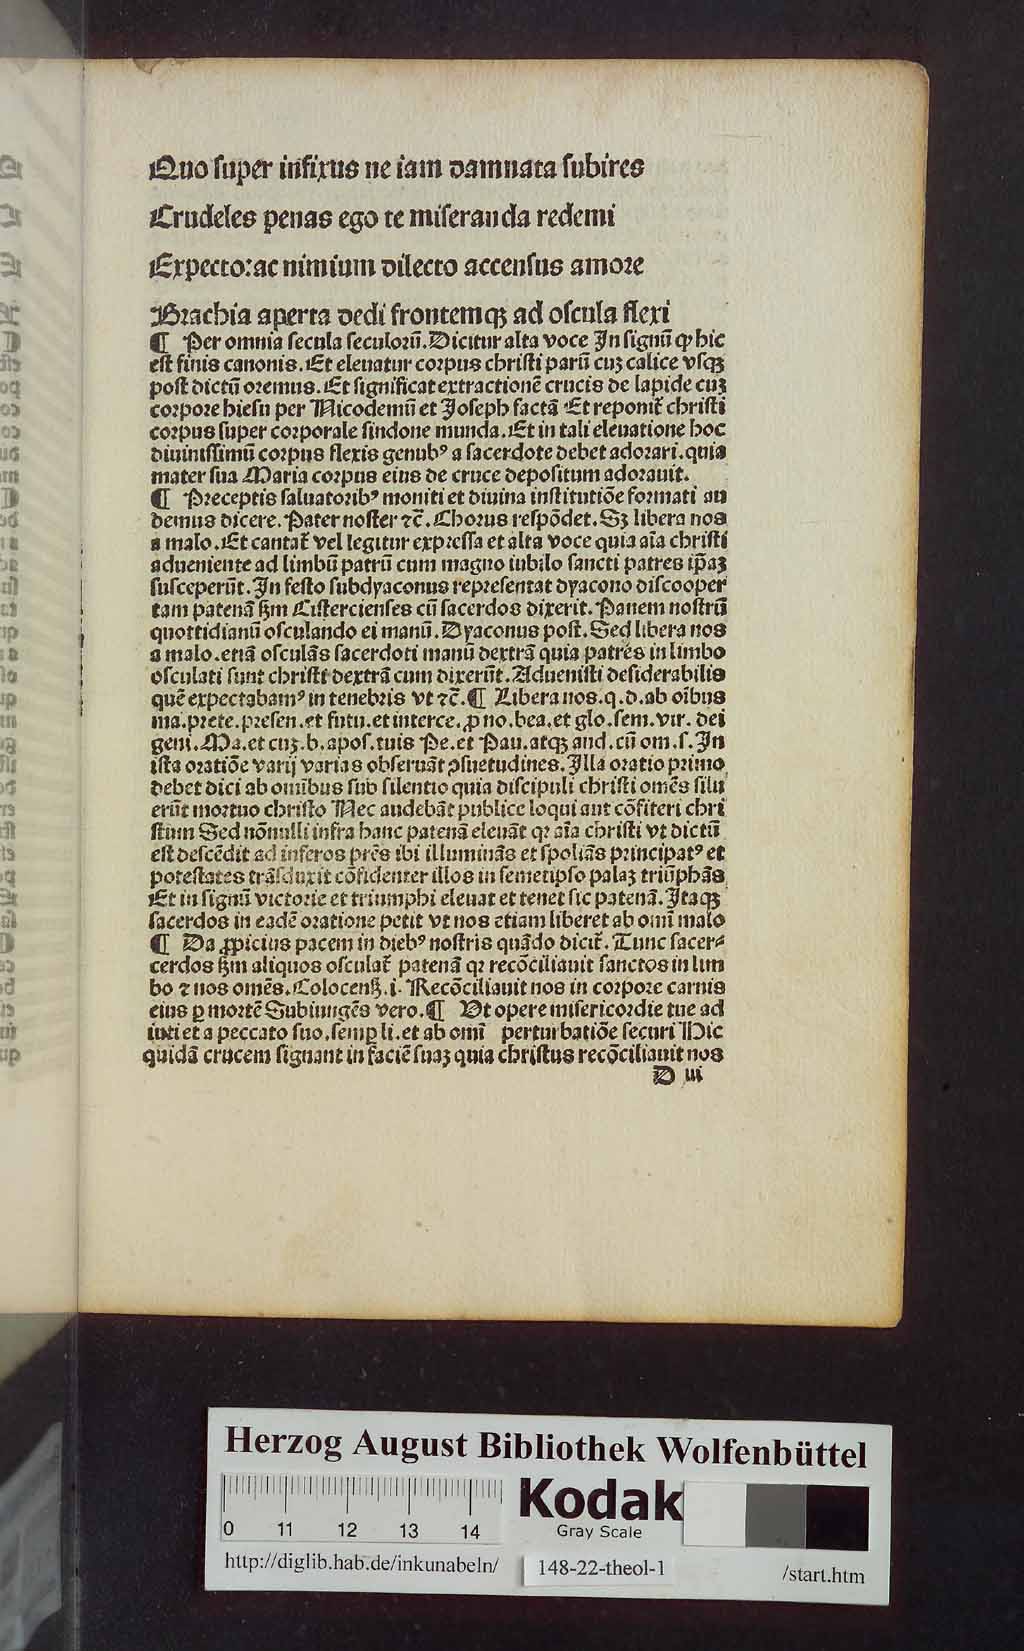 Quo ſuper infixus ne iam damnata ſubires
Crudeles penas ego te miſeranda redemi
Expecto: ac nimium dilecto accenſus amore
Brachia aperta dedi frontemqꝫ ad oſcula flexi
¶ Per omnia ſecula ſeculorū. Dicitur alta voce In ſignū ꝙ hic
eſt finis canonis. Et eleuatur corpus chriſti parū cuꝫ calice vſqꝫ
poſt dictū oremus. Et ſignificat extractionē crucis de lapide cuꝫ
corpore hieſu per Nicodemū et Joſeph factā Et reponit̄ chriſti
corpus ſuper corporale ſindone munda. Et in tali eleuatione hoc
diuiniſſimū corpus flexis genubꝰ a ſacerdote debet adorari. quia
mater ſua Maria corpus eius de cruce depoſitum adorauit.
¶ Preceptis ſaluatoribꝰ moniti et diuina inſtitutiōe formati au
demus dicere. Pater noſter ⁊c̄. Chorus reſpōdet. Sꝫ libera nos
a malo. Et cantat̄ vel legitur expreſſa et alta voce quia aīa chriſti
adueniente ad limbū patrū cum magno iubilo ſancti patres ip̄aꝫ
ſuſceperūt. In feſto ſubdyaconus repreſentat dyacono diſcooper
tam patenā ẜm Ciſtercienſes cū ſacerdos dixerit. Panem noſtrū
quottidianū oſculando ei manū. Dyaconus poſt. Sed libera nos
a malo. etiā oſculās ſacerdoti manū dextrā quia patres in limbo
oſculati ſunt chriſti dextrā cum dixerūt. Adueniſti deſiderabilis
quē expectabamꝰ in tenebris vt ⁊c̄. ¶ Libera nos. q. d. ab oībus
ma. prete. preſen. et futu. et interce. ꝓ no. bea. et glo. ſem. vir. dei
geni. Ma. et cuꝫ. b. apoſ. tuis Pe. et Pau. atqꝫ and. cū om. ſ. In
iſta oratiōe varij varias obſeruāt ꝯſuetudines. Illa oratio primo
debet dici ab omībus ſub ſilentio quia diſcipuli chriſti omēs ſilu
erūt mortuo chriſto Nec audebāt publice loqui aut cōfiteri chri
ſtum Sed nōnulli infra hanc patenā eleuāt qꝛ aīa chriſti vt dictū
eſt deſcēdit ad inferos prēs ibi illuminās et ſpoliās principatꝰ et
poteſtates trāſduxit cōfidenter illos in ſemetipſo palaꝫ triūphās
Et in ſignū victorie et triumphi eleuat et tenet ſic patenā. Itaqꝫ
ſacerdos in eadē oratione petit vt nos etiam liberet ab omī malo
¶ Da ꝓpicius pacem in diebꝰ noſtris quādo dicit̄. Tunc ſacer⸗
cerdos ẜm aliquos oſculat̄ patenā qꝛ recōciliauit ſanctos in lim
bo ⁊ nos omēs. Colocenẜ. i. Recōciliauit nos in corpore carnis
eius ꝑ mortē Subiungēs vero. ¶ Vt opere miſericordie tue ad
iuti et a peccato ſuo. ſemꝑ li. et ab omī perturbatiōe ſecuri Hic
quidā crucem ſignant in faciē ſuaꝫ quia chriſtus recōciliauit nos
D iii
Herzog August Bibliothek Wolfenbüttel
0 11 12 13 14
Kodak
Gray Scale
http://diglib.hab.de/inkunabeln/ 148-22-theol-1 /start.htm